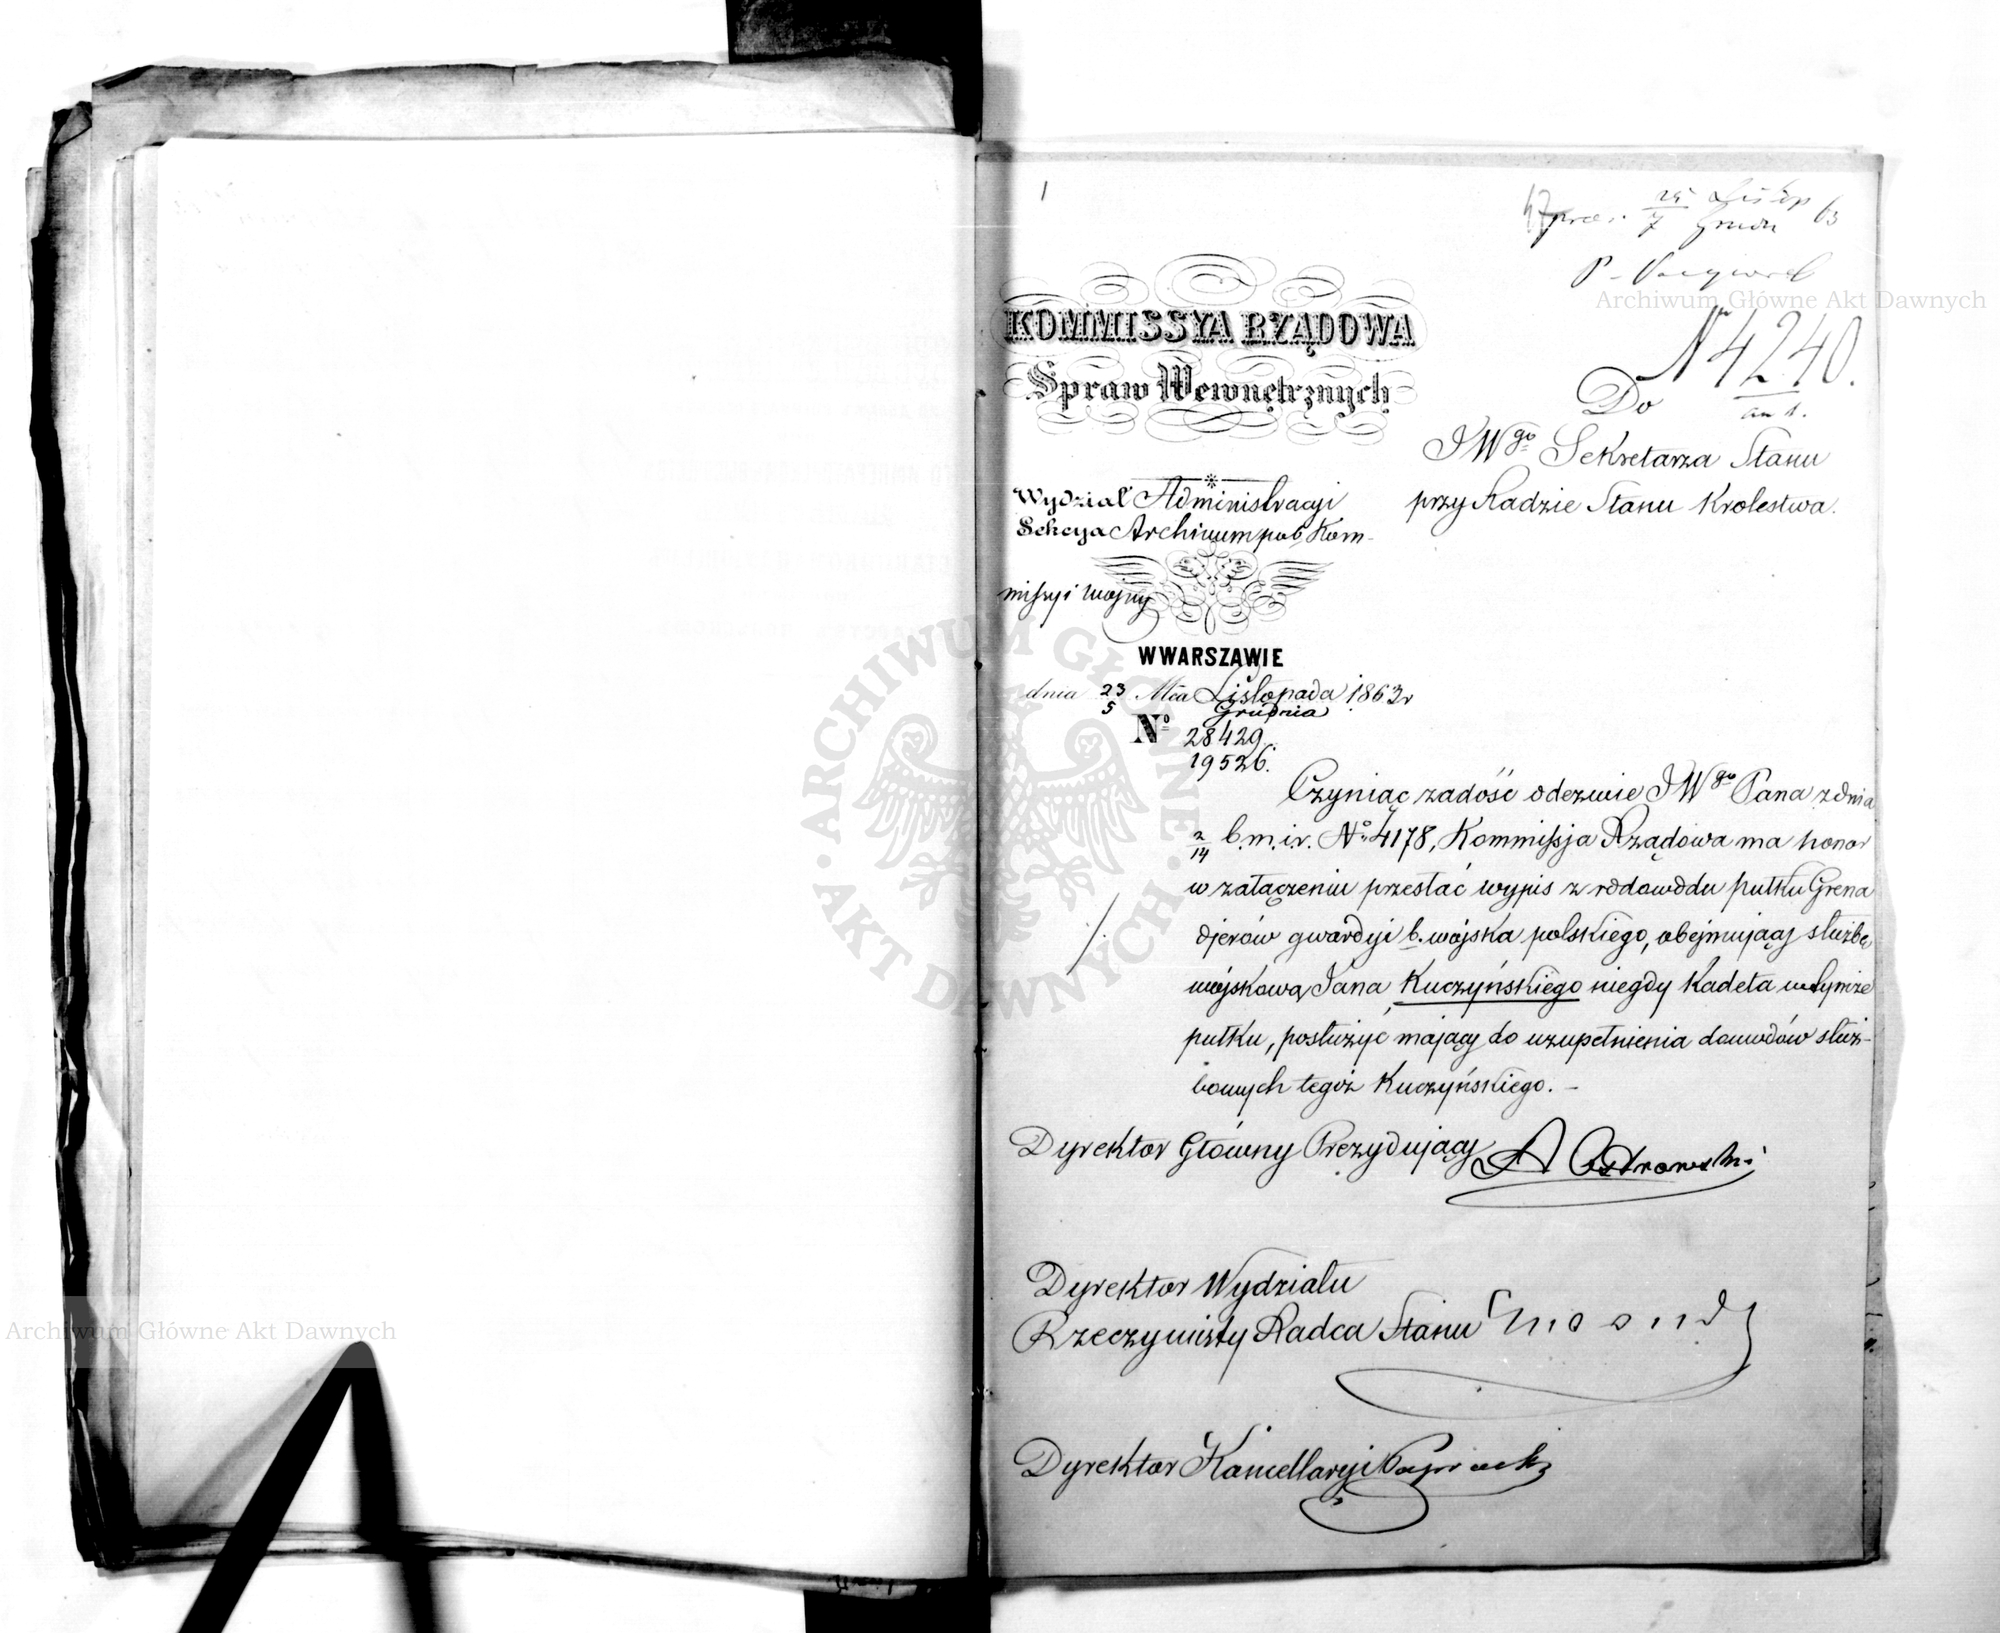 1
pres. 25/7 Listop Grud 63
Archiwum Główne Akt Dawnych
KOMMISSYA RZĄDOWA
Spraw Wewnętrznych
N 4240.
Do
JWgo Sekretarza Stanu
przy Radzie Stanu Krolestwa.
Wydział Administracyi
Sekcya Archiwum po b. Kom-
missyi Wojny
W WARSZAWIE
dnia 23/5 Mca Listopada/Grudnia 1863 r
No 28429.
19526.
Czyniąc zadość odezwie JWgo Pana z dnia
2/14 b.m.i.r. No 4178, Kommissja Rządowa ma honor
w załączeniu przesłać wypis z rodowodu pułku Grena
djerów gwardyi b. wojska polskiego, obejmujący służbę
wojskową Jana Kuczyńskiego niegdy Kadeta w tymże
pułku, posłużyć mający do uzupełnienia dowodów służ-
bowych tegoż Kuczyńskiego. –
Dyrektor Główny Prezydujący A Ostrowski
Dyrektor Wydziału
Rzeczywisty Radca Stanu
Dyrektor Kancellaryi
ARCHIWUM GŁÓWNE AKT DAWNYCH
Archiwum Główne Akt Dawnych